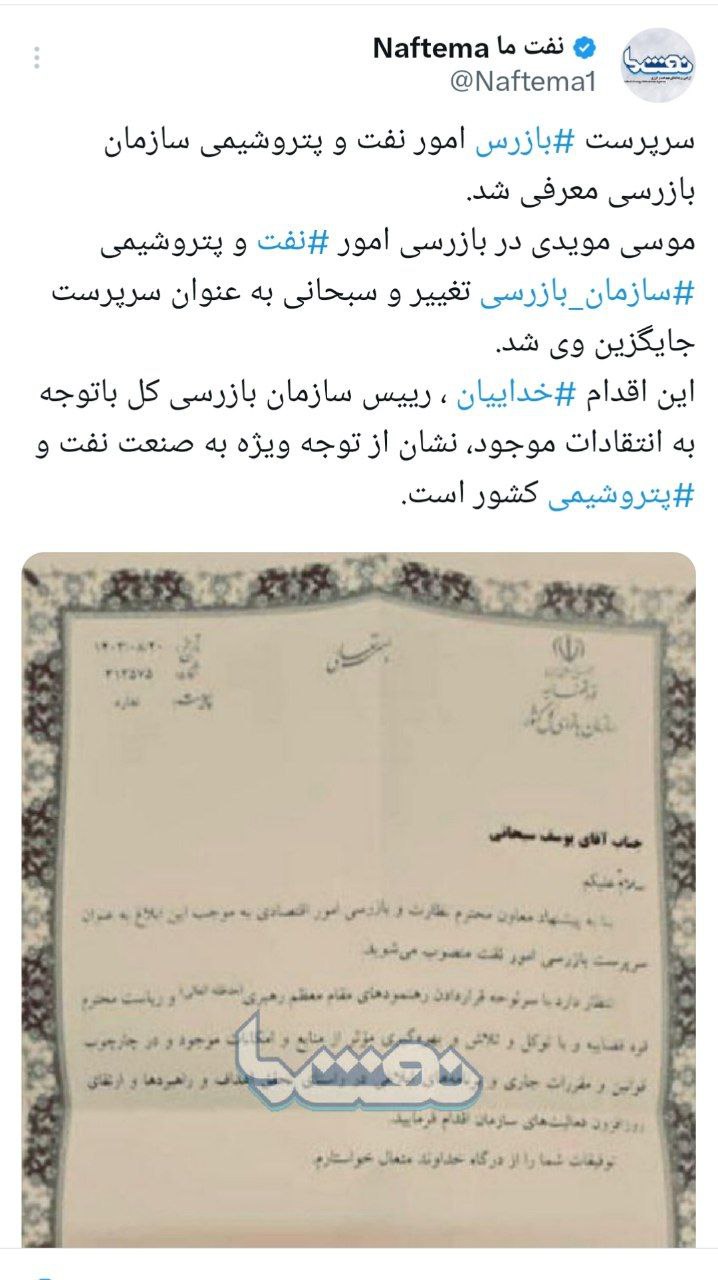 نفت ما Naftema
@Naftema1
سرپرست #بازرس امور نفت و پتروشیمی سازمان
بازرسی معرفی شد.
موسی مویدی در بازرسی امور #نفت و پتروشیمی
#سازمان_بازرسی تغییر و سبحانی به عنوان سرپرست
جایگزین وی شد.
این اقدام #خداییان ، رییس سازمان بازرسی کل باتوجه
به انتقادات موجود، نشان از توجه ویژه به صنعت نفت و
#پتروشیمی کشور است.
بسمه تعالی
قوه قضاییه
سازمان بازرسی کل کشور
تاریخ: ۱۴۰۳/۰۸/۲۰
شماره: ۳۱۲۵۷۵
پیوست: ندارد
جناب آقای یوسف سبحانی
سلام علیکم
بنا به پیشنهاد معاون محترم نظارت و بازرسی امور اقتصادی به موجب این ابلاغ به عنوان
سرپرست بازرسی امور نفت منصوب می‌شوید.
انتظار دارد با سرلوحه قراردادن رهنمودهای مقام معظم رهبری (حفظه الله تعالی) و ریاست محترم
قوه قضاییه و با توکل و تلاش و بهره‌گیری مؤثر از منابع و امکانات موجود و در چارچوب
قوانین و مقررات جاری و برنامه‌های ابلاغی در راستای تحقق اهداف و راهبردها و ارتقای
روزافزون فعالیت‌های سازمان اقدام فرمایید.
توفیقات شما را از درگاه خداوند متعال خواستارم.
نفت ما